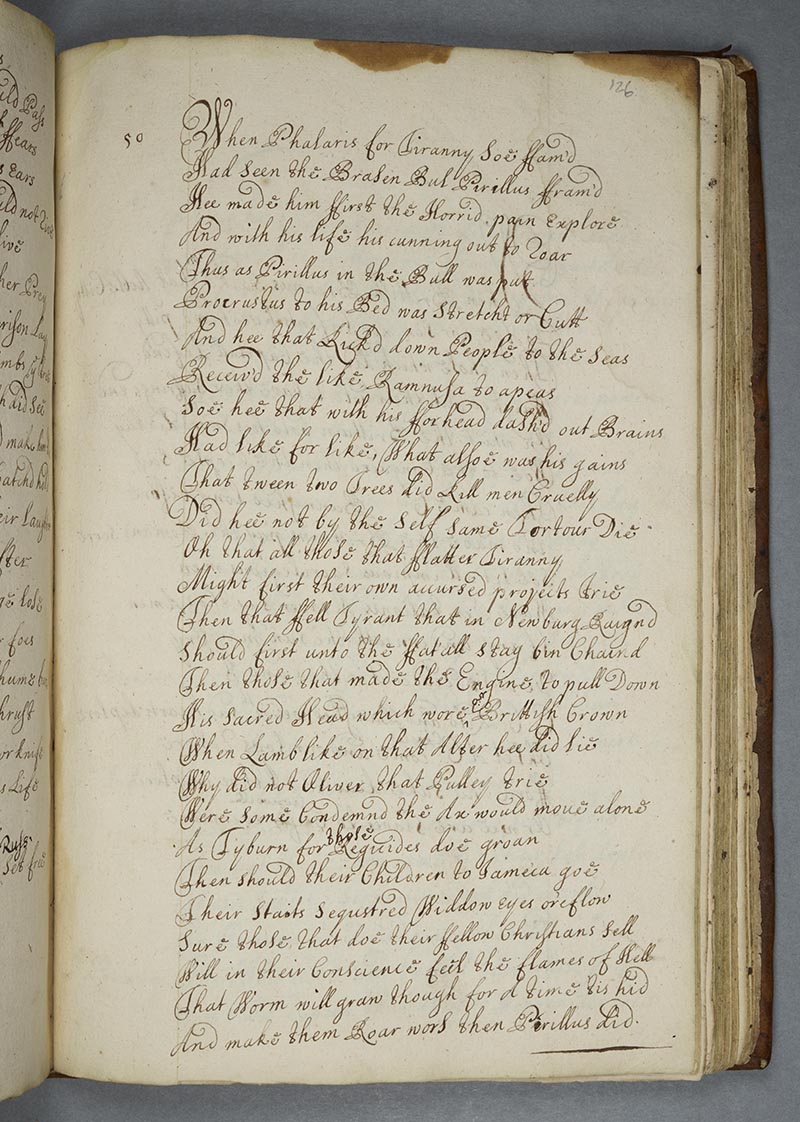 uld Pass
ffears
s Ears
uld not
live
her Prey
rison Lay
h did see
d make
eir
fter
foes
hrust
or
s Life
Set free
126
50
When Phalaris for Tiranny Soe ffam'd
Had Seen the Brasen Bul Pirillus ffram'd
Hee made him ffirst the Horrid pain Explore
And with his life his cunning out to Roar
Thus as Pirillus in the Bull was put
Procrustus to his Bed was Stretcht or Cutt
And hee that Kick'd down People to the Seas
Receiv'd the like Ramnusa to apeas
Soe hee that with his fforhead dash'd out Brains
Had like for like, What alsoe was his gains
That tween two Trees did Kill men Cruelly
Did hee not by the Self Same Tortour Die
Oh that all those that fflatter Tiranny
Might first their own accursed projects trie
Then that ffell Tyrant that in Newburg Raignd
Should first unto the ffatall Stay bin Chaind
Then those that made the Engine to pull Down
His Sacred Head which wore the Brittish Crown
When Lamb like on that Alter hee did lie
Why did not Oliver that Pulley trie
Were Some Condemnd the Ax would move alone
As Tyburn for those Regicides doe groan
Then should their Children to Jameca goe
Their Staits Segustred Widdow eyes oreflow
Sure those that doe their ffellow Christians Sell
Will in their Conscience feel the flames of Hell
That Worm will gnaw though for A time tis hid
And make them Roar wors then Pirillus did.